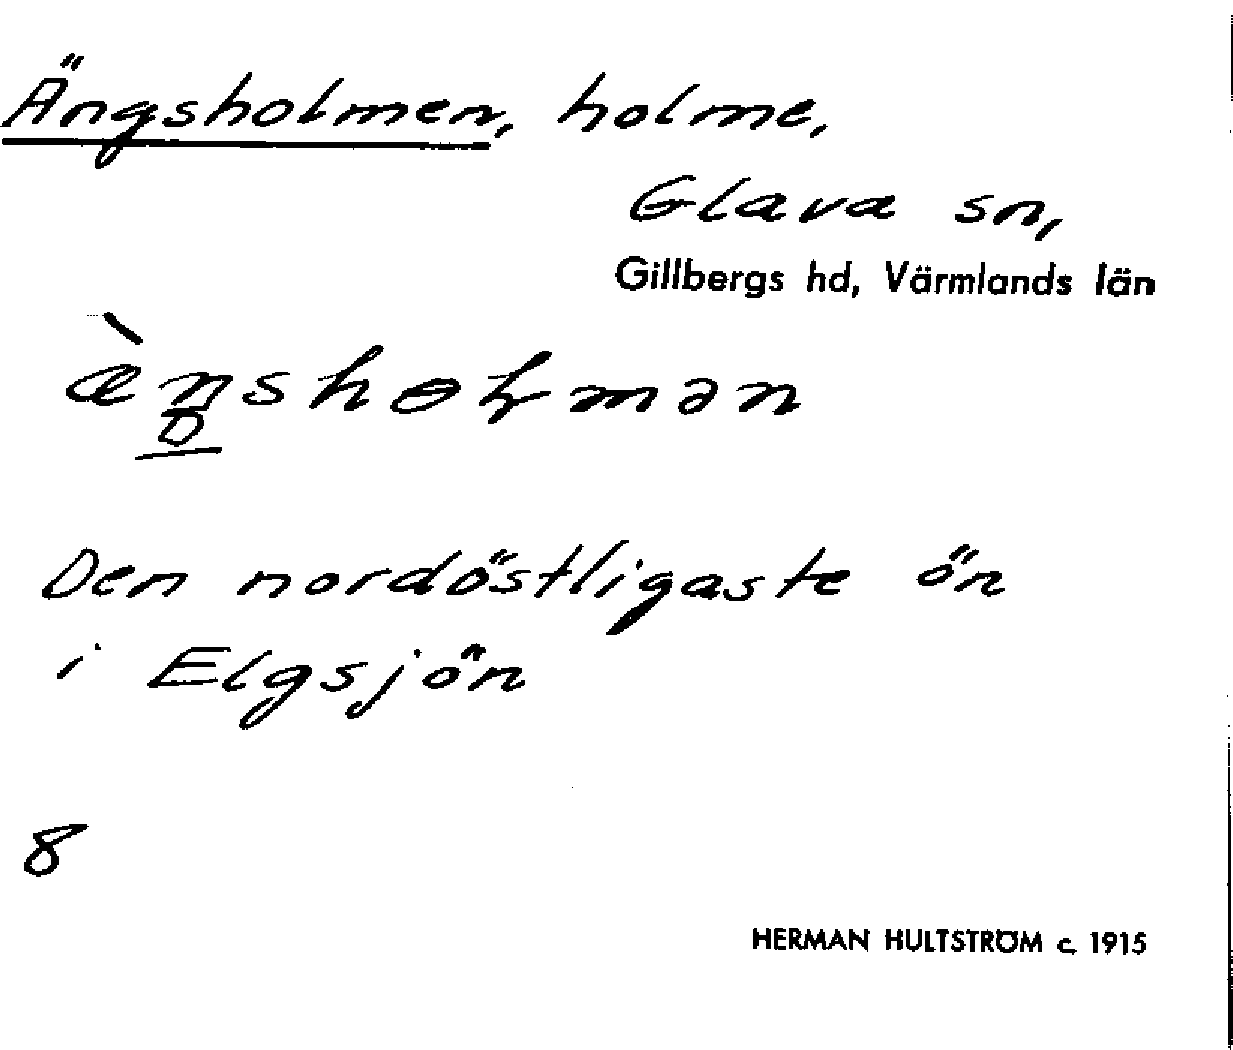 Ängsholmen, holme,
Glava sn,
Gillbergs hd, Värmlands län
Den nordöstligaste ön
i Elgsjön
8
HERMAN HULTSTRÖM c. 1915